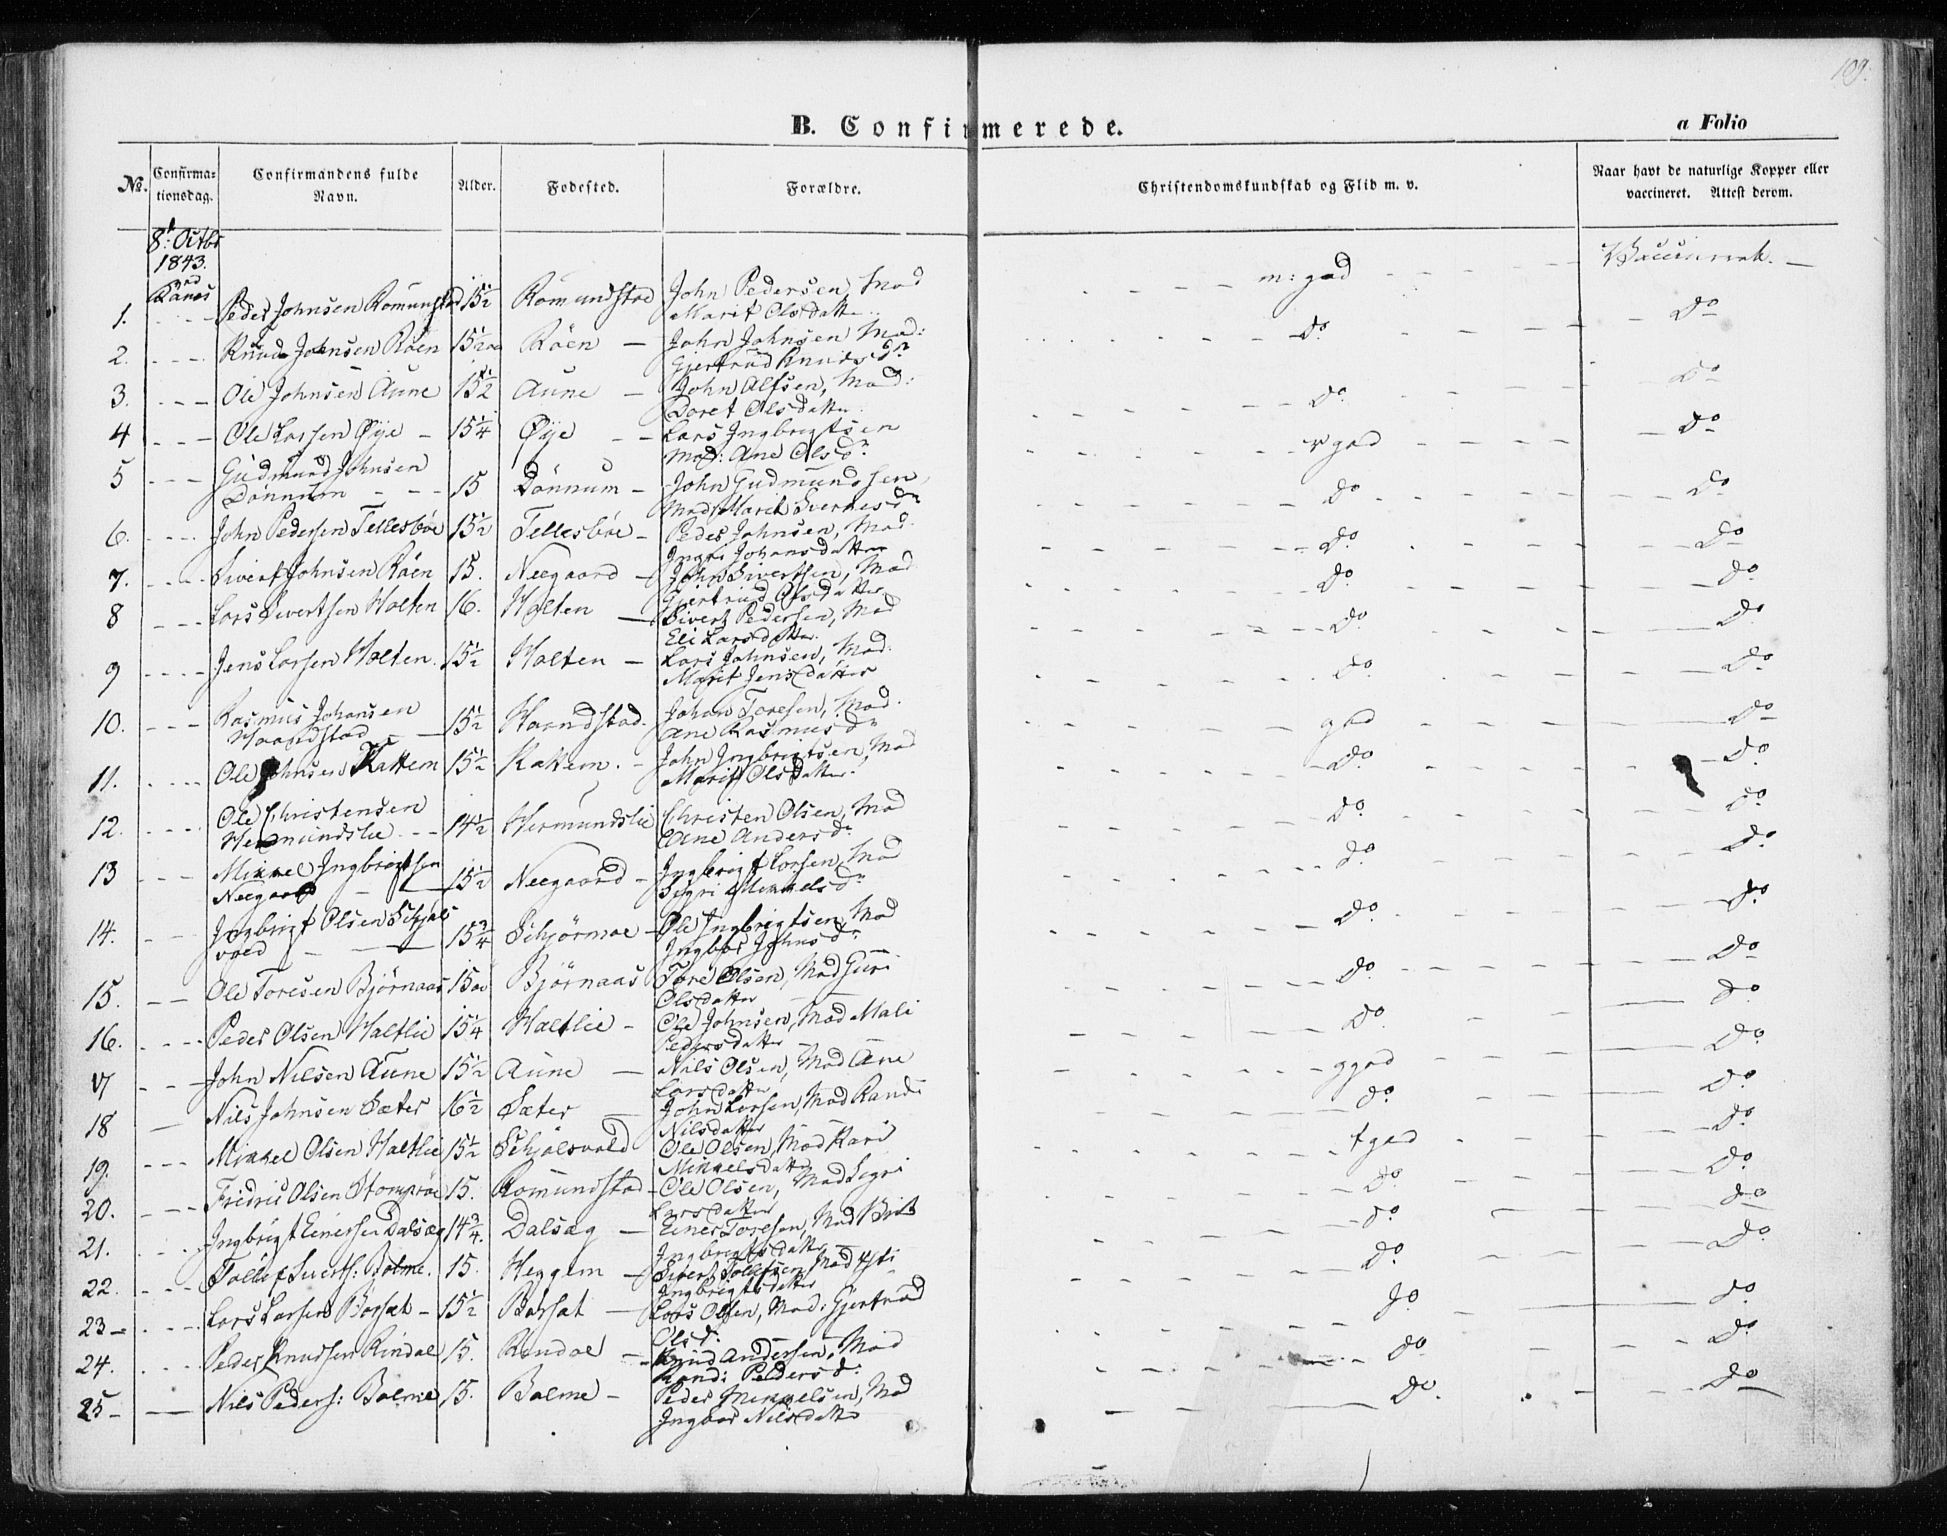 109.
B. Confirmerede.
a Folio
No. Confirmationsdag. Confirmandens fulde Navn. Alder. Fødested. Forældre. Christendomskundskab og Flid m. v. Naar havt de naturlige Kopper eller vaccineret. Attest derom.
8: Octbr
1843.
ved
Ranes
1. Peder Johnsen Romunstad 15½ Romundstad John Pedersen, Mod m: god Vaccineret.
Marit Olsdatter
2. Knud Johnsen Röen 15½ Röen John Johnsen Mod: do do
Gjertrud Knudsdr
3. Ole Johnsen Aune 15½ Aune John Olsen, Mod: do do
Doret Olsdatter
4 Ole Larsen Øye 15¼ Øye Lars Ingbrigtsen god do
Mod: Ane Olsdr
5 Gudmund Johnsen John Gudmundsen,
Dønnum 15 Dønnum Mod Marit Sivertsdr do do
6. John Pedersen Tellesböe 15½ Tellesböe Peder Johnsen, Mod do do
Ingri Johansdatter
7. Sivert Johnsen Röen 15. Neegaard John Sivertsen, Mod do do
Gjertrud Olsdatter
8 Lars Sivertsen Holten 16. Holten Sivert Pedersen, Mod do do
Eli Larsdatter
9 Jens Larsen Holten. 15½ Holten Lars Johnsen, Mod: do do
Marit Jensdatter
10. Rasmus Johansen Johan Toresen, Mod
Haandstad 15½ Haandstad. Ane Rasmusdr god do
11. Ole Johnsen Kattem 15½ Kattem. John Ingbrigtsen, Mod do do
Marit Olsdatter
12. Ole Christensen Christen Olsen, Mod
Hermundslie 14½ Hermundslie Ane Andersdr do do
13 Mikkel Ingbrigtsen Ingbrigt Larsen, Mod
Neegaard 15½ Neegaard Sigri Mikkelsdr do do
14. Ingbrigt Olsen Schjøls Ole Ingbrigtsen, Mod
vold 15¾ Schjørmoe Ingbor Johnsdr do do
15. Ole Toresen Bjørnaas 15 Bjørnaas Tore Olsen, Mod Guri do do
Olsdatter
16. Peder Olsen Haltlie 15¼ Haltlie Ole Johnsen, Mod Mali do do
Pedersdatter
17 John Nilsen Aune 15½ Aune Nils Olsen, Mod Ane ggod do
Larsdatter
18 Nils Johnsen Sæter 16½ Sæter John Larsen, Mod Randi do do
Nilsdatter
19. Mikkel Olsen Haltlie 15½ Schjølsvold Ole Olsen, Mod Kari tgod do
Mikkelsdatter
20. Fredric Olsen Stomprøe 15. Romundstad Ole Olsen, Mod Sigri do do
Larsdatter
21. Ingbrigt Einersen Dalsæg 14¾. Dalsæg Einer Toresen, Mod Brit do do
Ingbrigtsdatter
22. Tollef Siverts: Bolme. 15. Heggem Sivert Tollefsen, Mod do do
Ingbrigtsdatter
23 Lars Larsen Borsæt 15½ Borsæt Lars Olsen, Mod: Gjertrud do do
Olsd:
24. Peder Knudsen Rindal 15. Rindal Knud Andersen, Mod do do
Randi Pedersd:
25 Nils Peders: Bolme 15. Bolme Peder Mikkelsen, Mod do do
Ingbor Nilsdatter